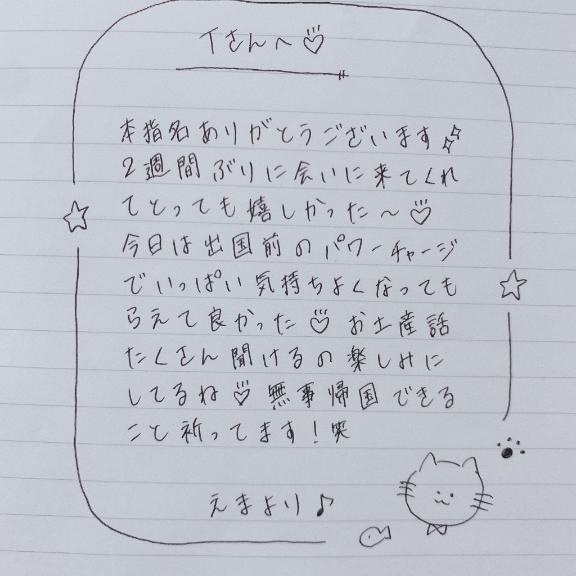 Tさんへ♡
本指名ありがとうございます✨
2週間ぶりに会いに来てくれ
てとっても嬉しかった〜♡
今日は出国前のパワーチャージ
でいっぱい気持ちよくなっても
らえて良かった♡ お土産話
たくさん聞けるの楽しみに
してるね♡ 無事帰国できる
こと祈ってます！笑
えまより♪